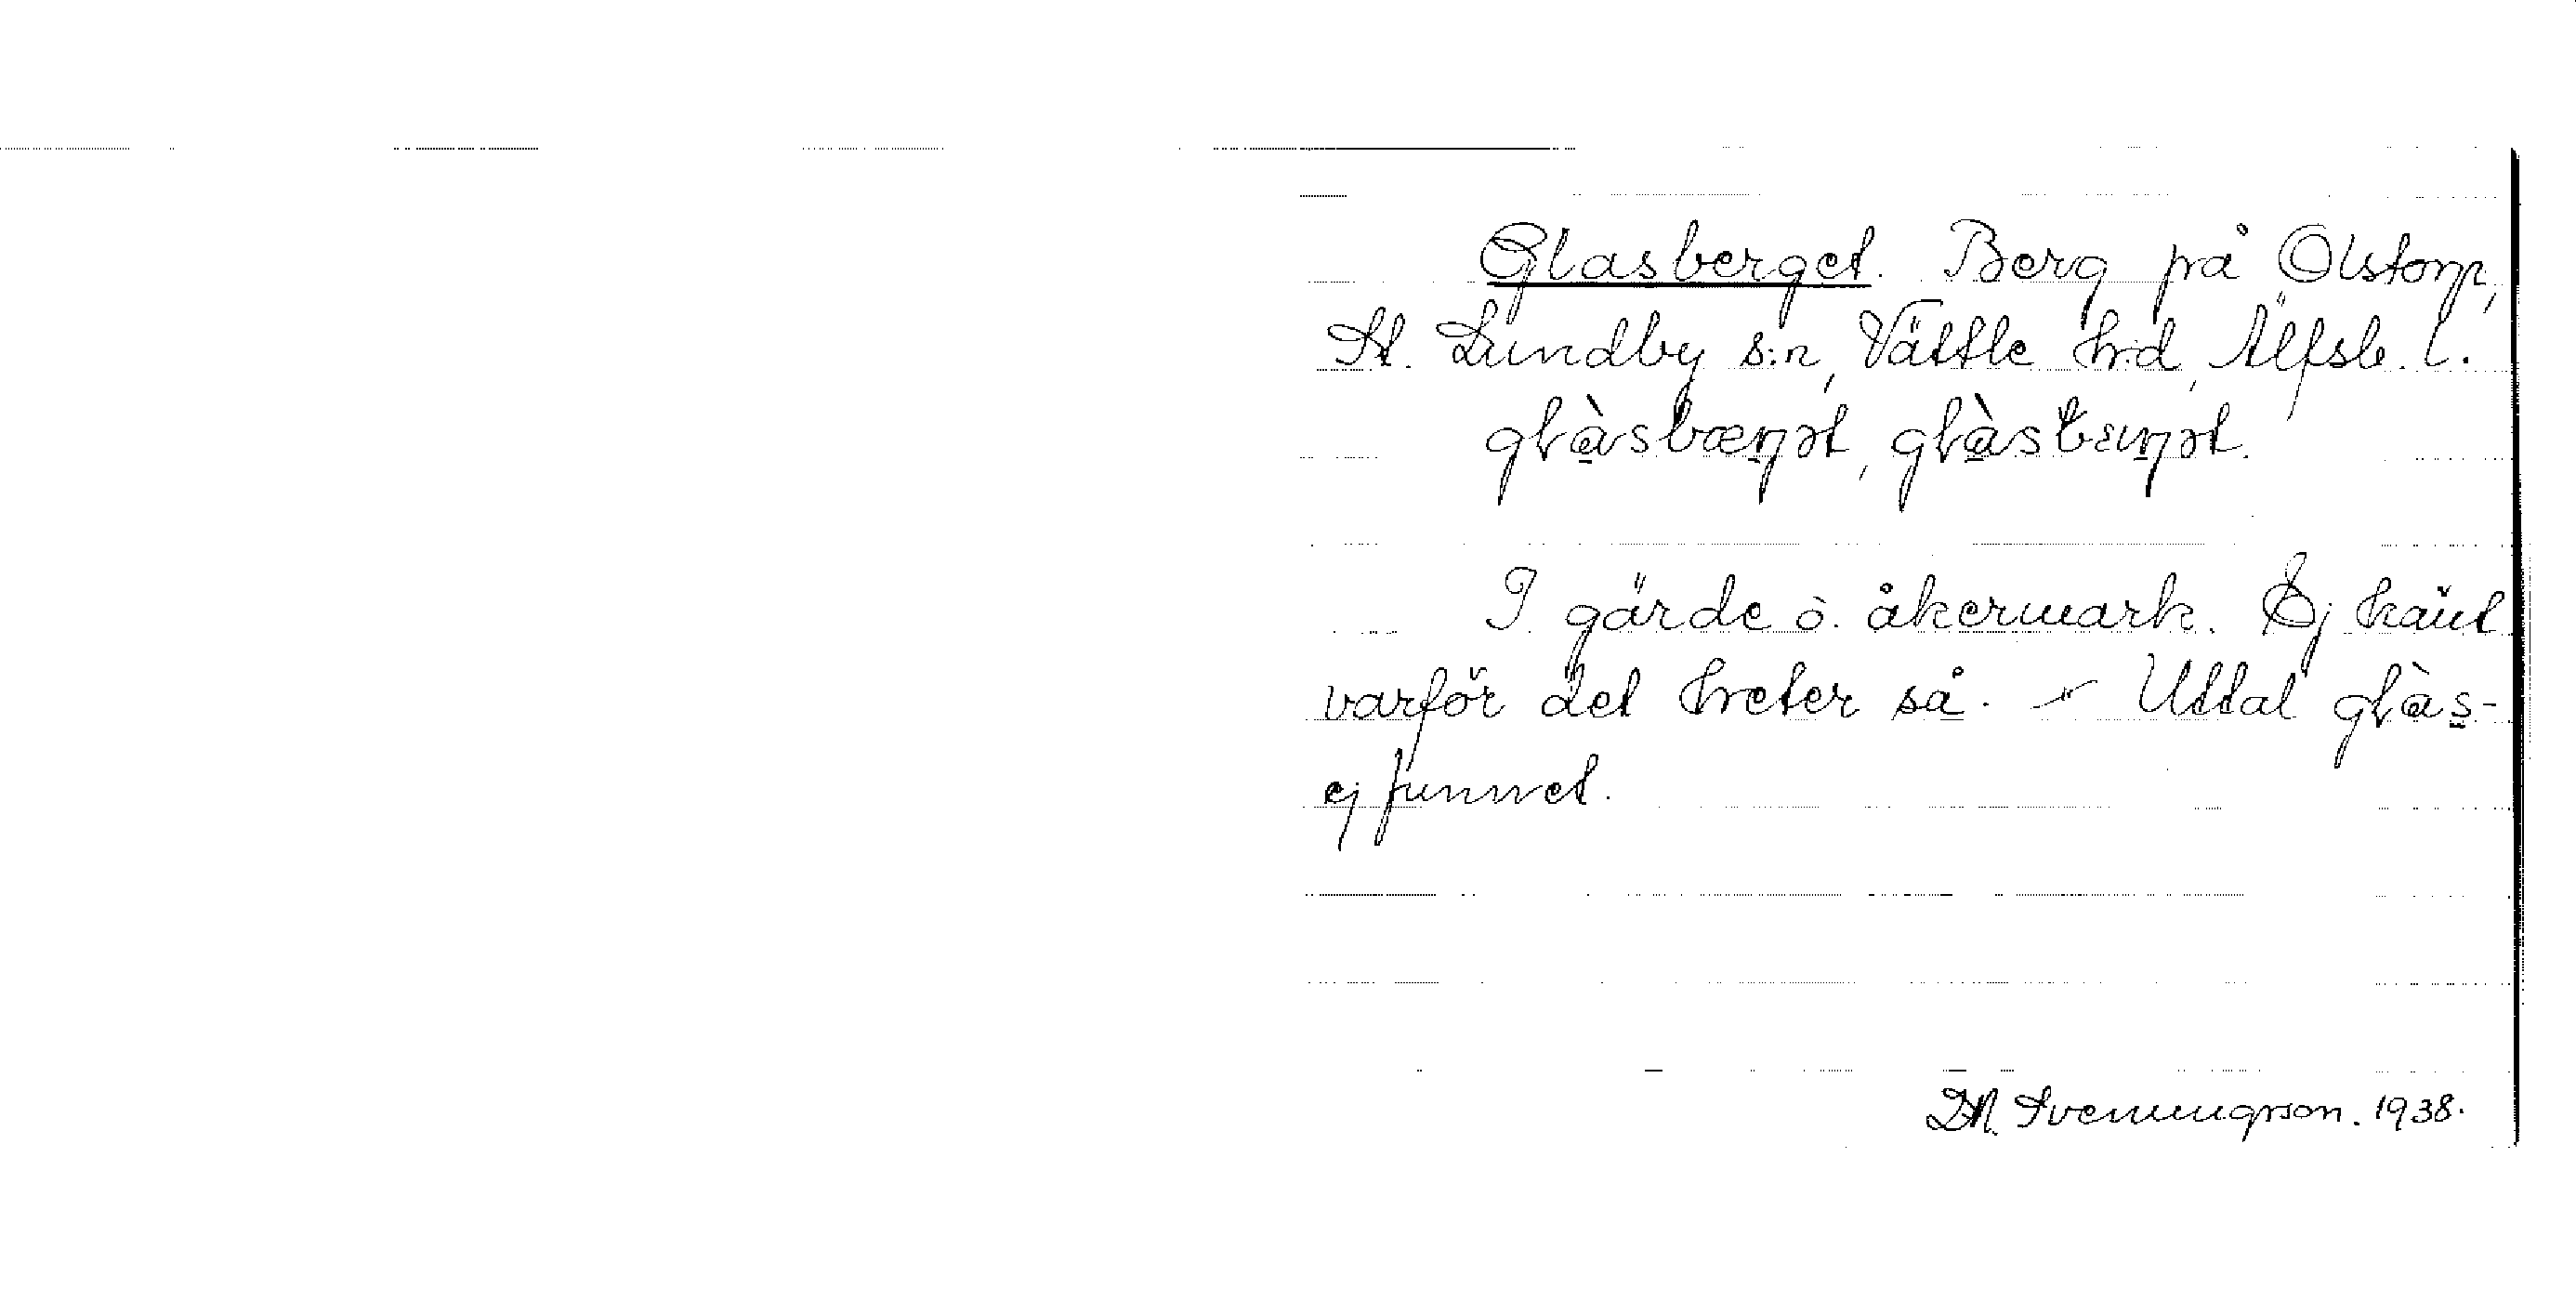 Glasberget. Berg på Olstorp,
St. Lundby s:n, Vättle h:d, Älfsb. l.
I gärde o. åkermark. Ej känt
varför det heter så. – Uttal glàs-
ej funnet.
Svenningson. 1938.